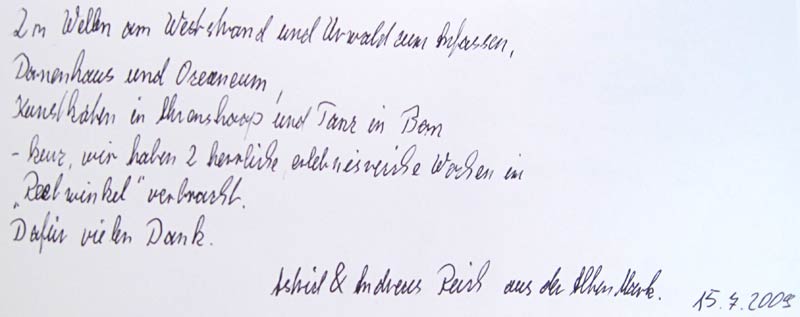 2 m Wellen am Weststrand und Urwald zum Anfassen,
Darwenhaus und Ozeaneum,
Kunstkaten in Ahrenshoop und Tanz in Born
- kurz, wir haben 2 herrliche, erlebnisreiche Wochen in
"winkel" verbracht.
Dafür vielen Dank.
Astrid & Andreas Reich aus der Alten Mark. 15.7.2009